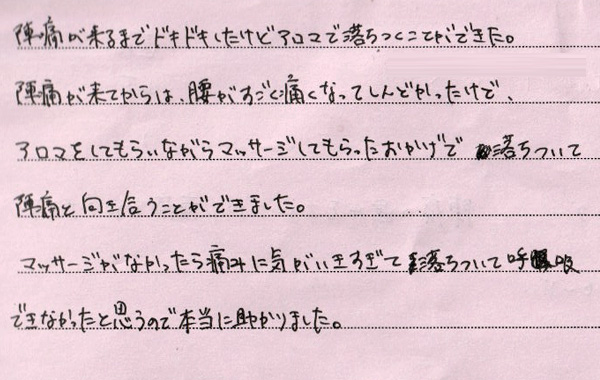 陣痛が来るまでドキドキしたけどアロマで落ちつくことができた。
陣痛が来てからは、腰がすごく痛くなってしんどかったけど、
アロマをしてもらいながらマッサージしてもらったおかげで落ちついて
陣痛と向き合うことができました。
マッサージがなかったら痛みに気がいきすぎて落ちついて呼吸
できなかったと思うので本当に助かりました。